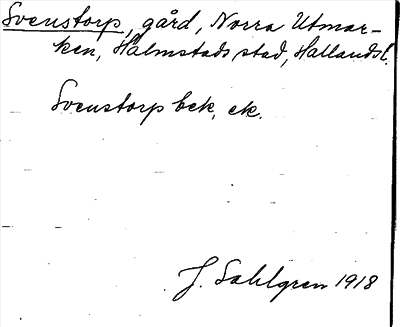 Svenstorp, gård, Norra Utmar-
ken, Halmstads stad, Hallands l.
Svenstorp bek, ek.
J. Sahlgren 1918